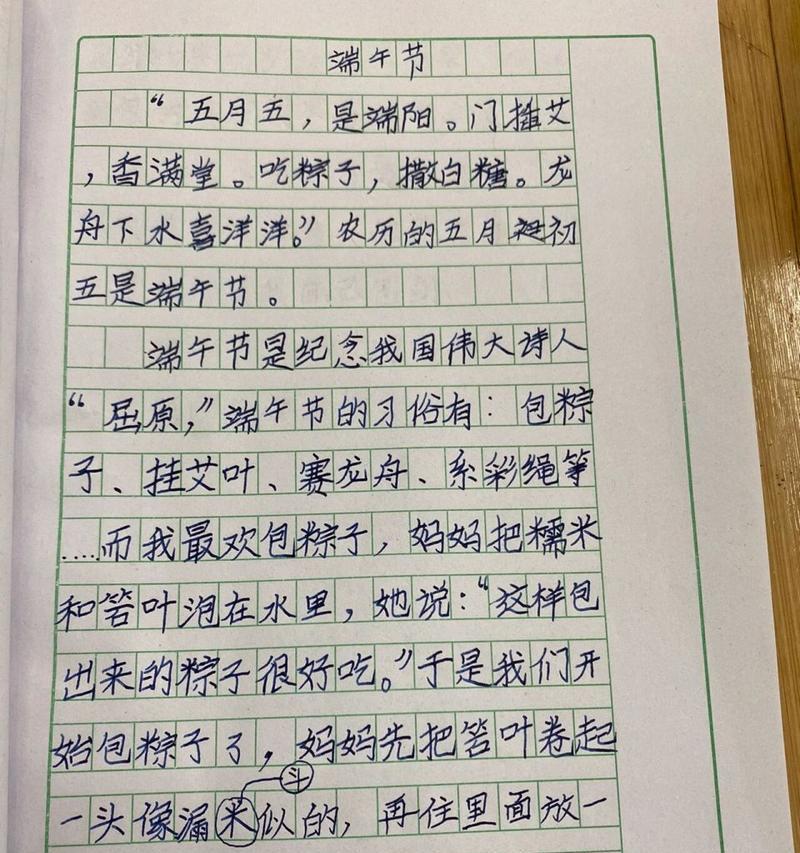 端午节
“五月五，是端阳。门插艾
，香满堂。吃粽子，撒白糖。龙
舟下水喜洋洋。”农历的五月初
五是端午节。
端午节是纪念我国伟大诗人
“屈原，”端午节的习俗有：包粽
子、挂艾叶、赛龙舟、系彩绳等
....而我最欢包粽子，妈妈把糯米
和箬叶泡在水里，她说：“这样包
出来的粽子很好吃。”于是我们开
始包粽子了，妈妈先把箬叶卷起
斗
一头像漏米似的，再住里面放一